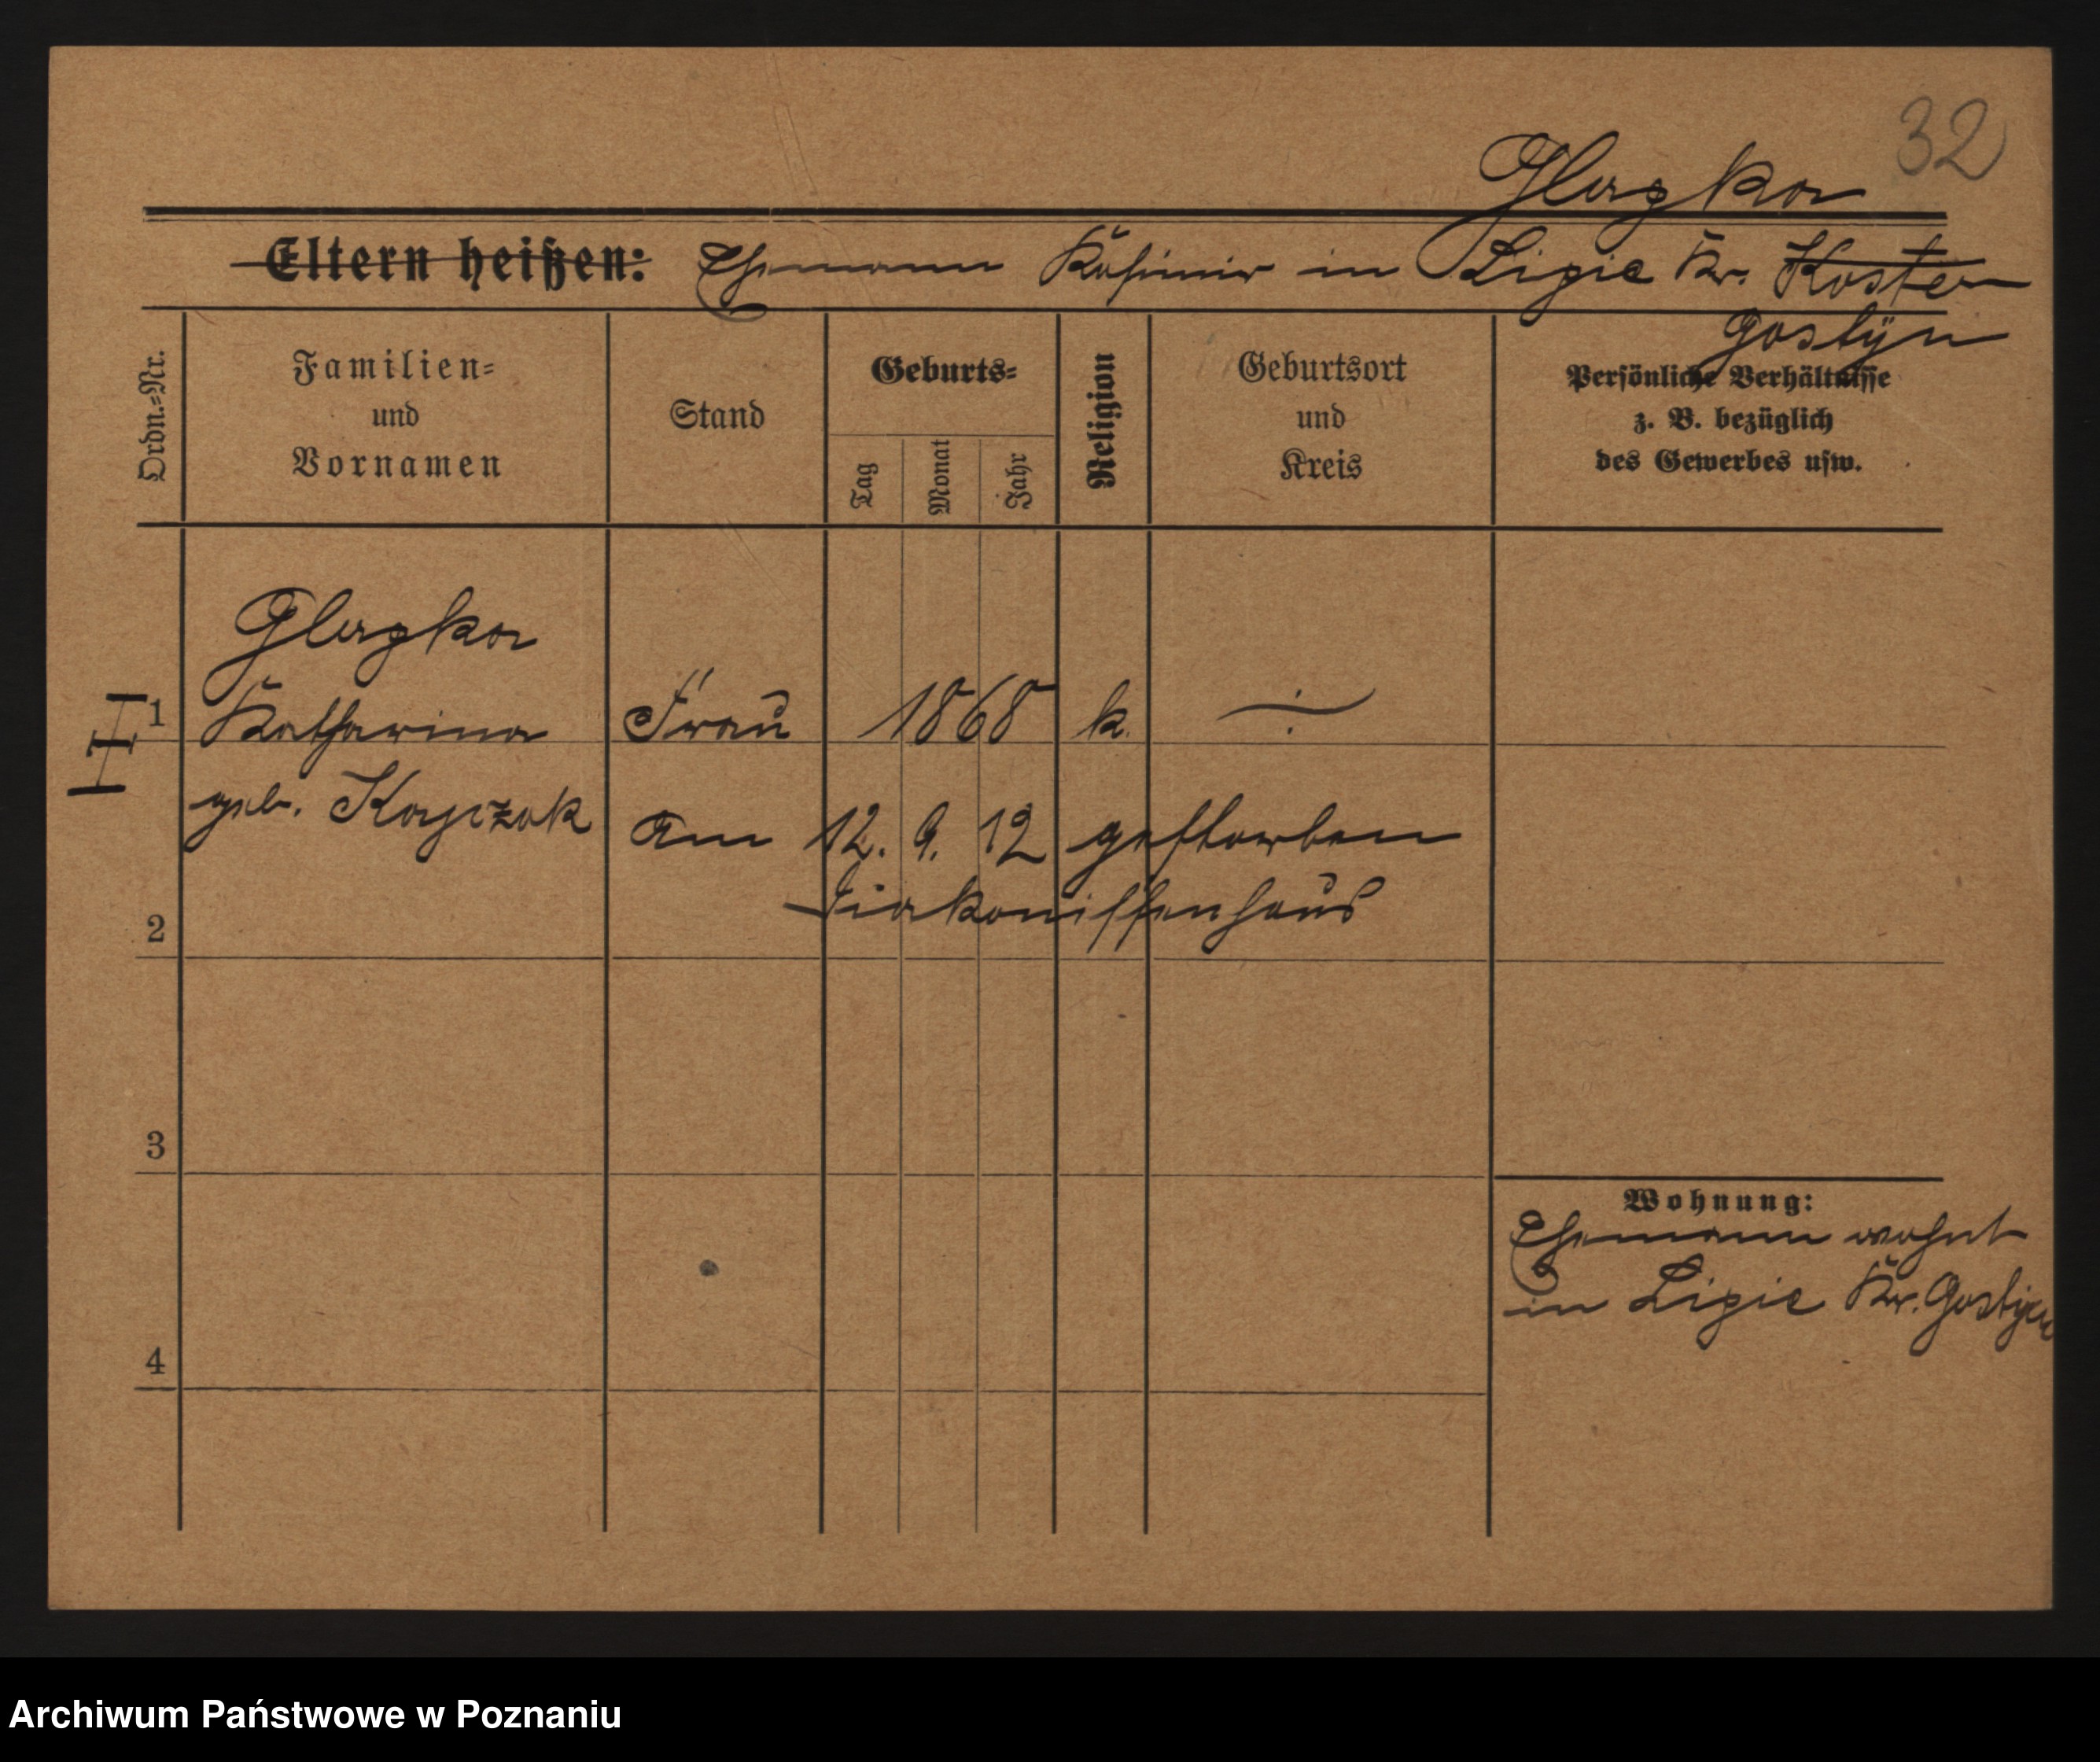 32
Glapka
Eltern heißen: Ehemann Kasimir in Lipie Kr. Kosten
Gostÿn
Ordn.=Nr.
Familien=
und
Vornamen
Stand
Geburts=
Tag
Monat
Jahr
Religion
Geburtsort
und
Kreis
Persönliche Verhältnisse
z. B. bezüglich
des Gewerbes usw.
Glapka
1 Katharina Frau 1868 k.
geb.
am 12. 9. 12 gestorben
Diakonissenhaus
2
3
Wohnung:
Ehemann wohnt
in Lipie Kr. Gostÿn
4
Archiwum Państwowe w Poznaniu